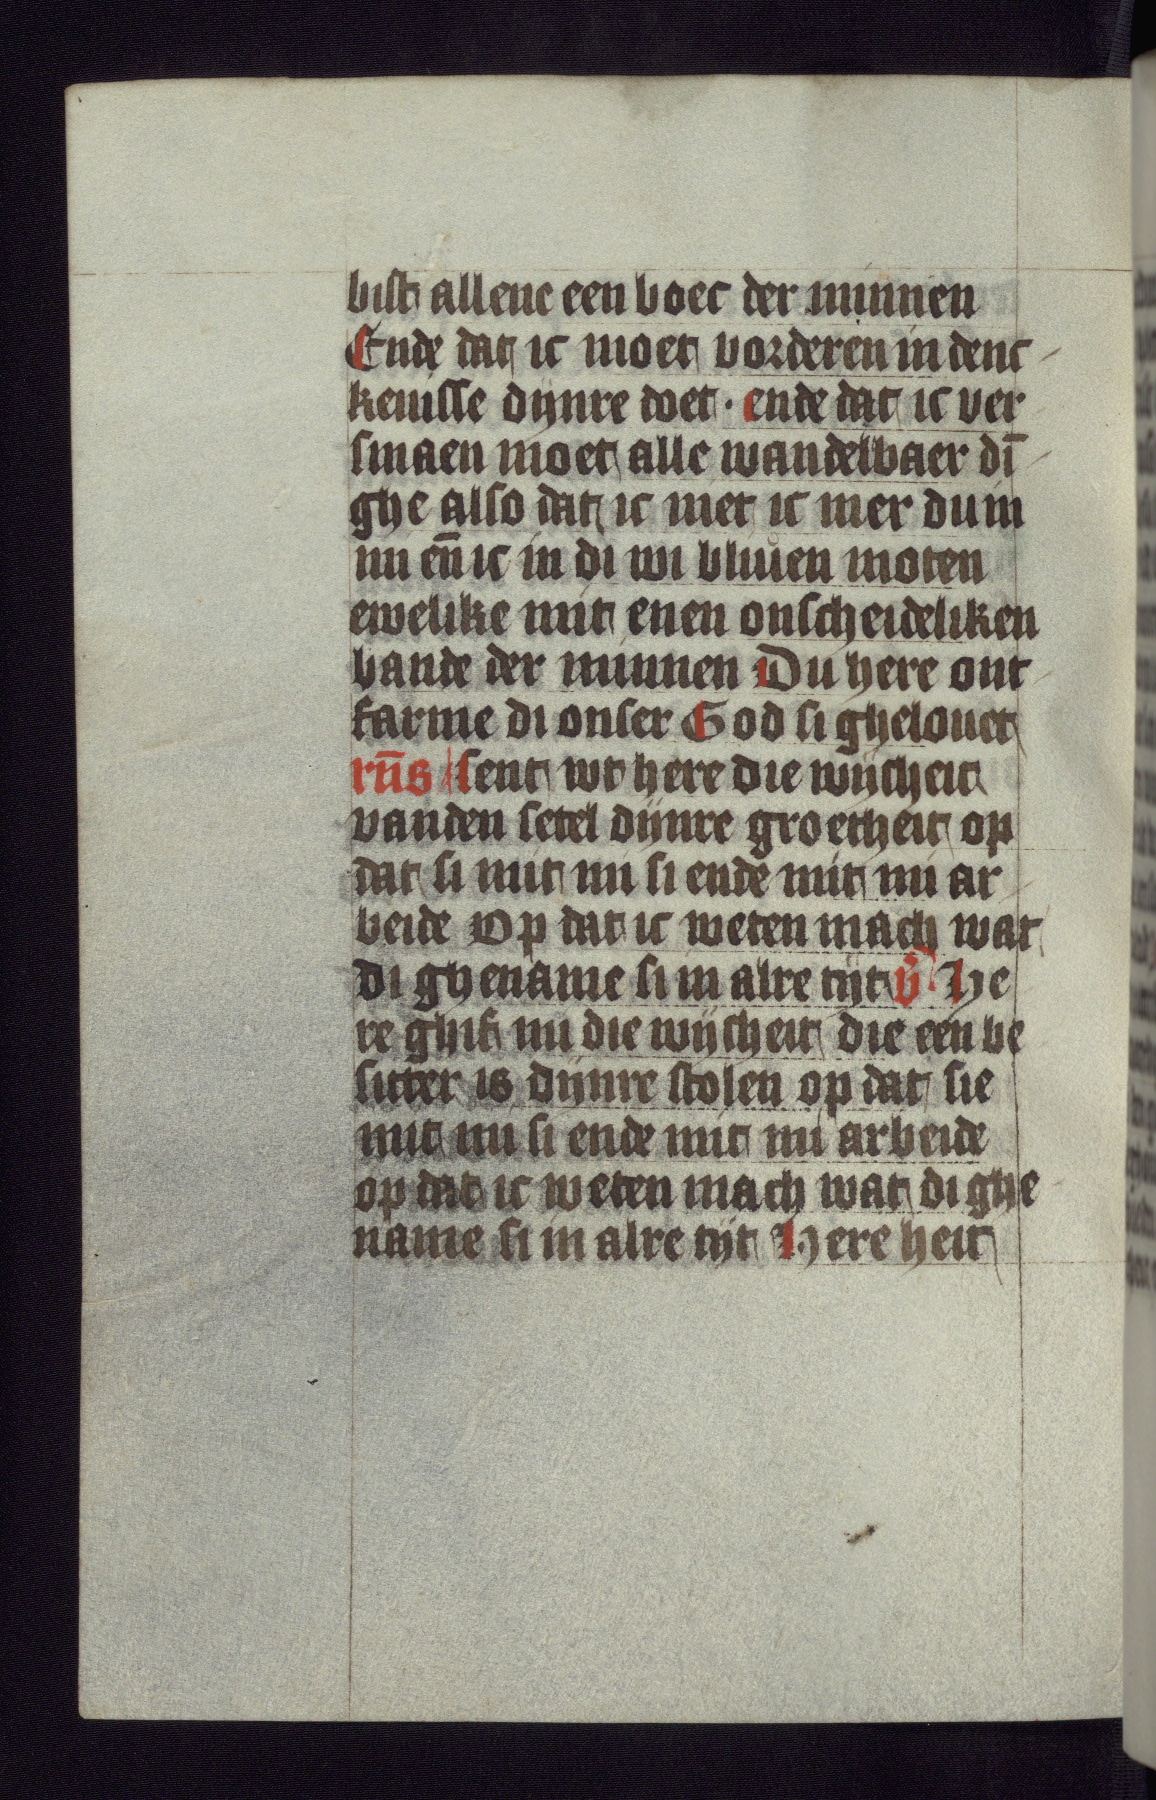 bist allene een boec der minnen
Ende dat ic moet vorderen in denc
kenisse dijnre doet · ende dat ic ver
smaen moet alle wandelbaer dī
ghe also dat ic niet ic mer du in
mi eñ ic in di wi bliuen moten
ewelike mit enen onscheideliken
bande der minnen Du here ont
farme di onser God si ghelouet
rn̄s sent wt here die wijsheit
vanden setel dijnre groetheit op
dat si mit mi si ende mit mi ar
beide Op dat ic weten mach wat
di ghename si in alre tijt v̄ He
re ghif mi die wijsheit die een be
sitter is dijnre stolen op dat sie
mit mi si ende mit mi arbeide
op dat ic weten mach wat di ghe
name si in alre tijt Here heit